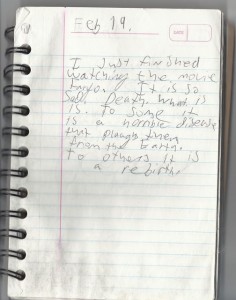 Feb 19.
DATE
I just finished
watching the movie
It is so
sad. Death. What is
is. To some it
is a horrible disease
that plaugs them
from the Earth.
To others it is
a rebirth.